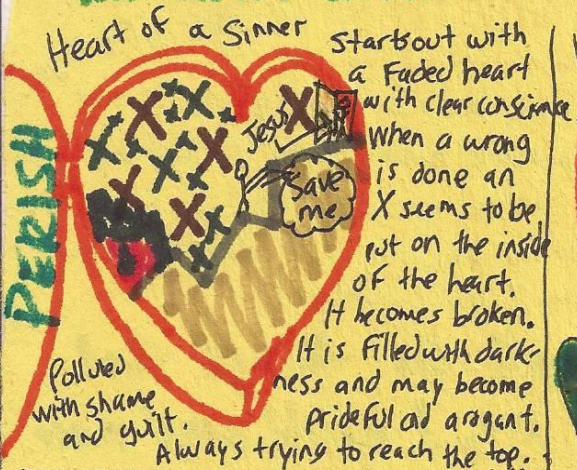 Heart of a Sinner
PERISH
Jesus
Save
me
Starts out with
a Faded heart
with clear conscience
When a wrong
is done an
X seems to be
put on the inside
of the heart.
It becomes broken.
It is filled with dark-
ness and may become
prideful and arogant.
Always trying to reach the top.
Polluted
with shame
and guilt.